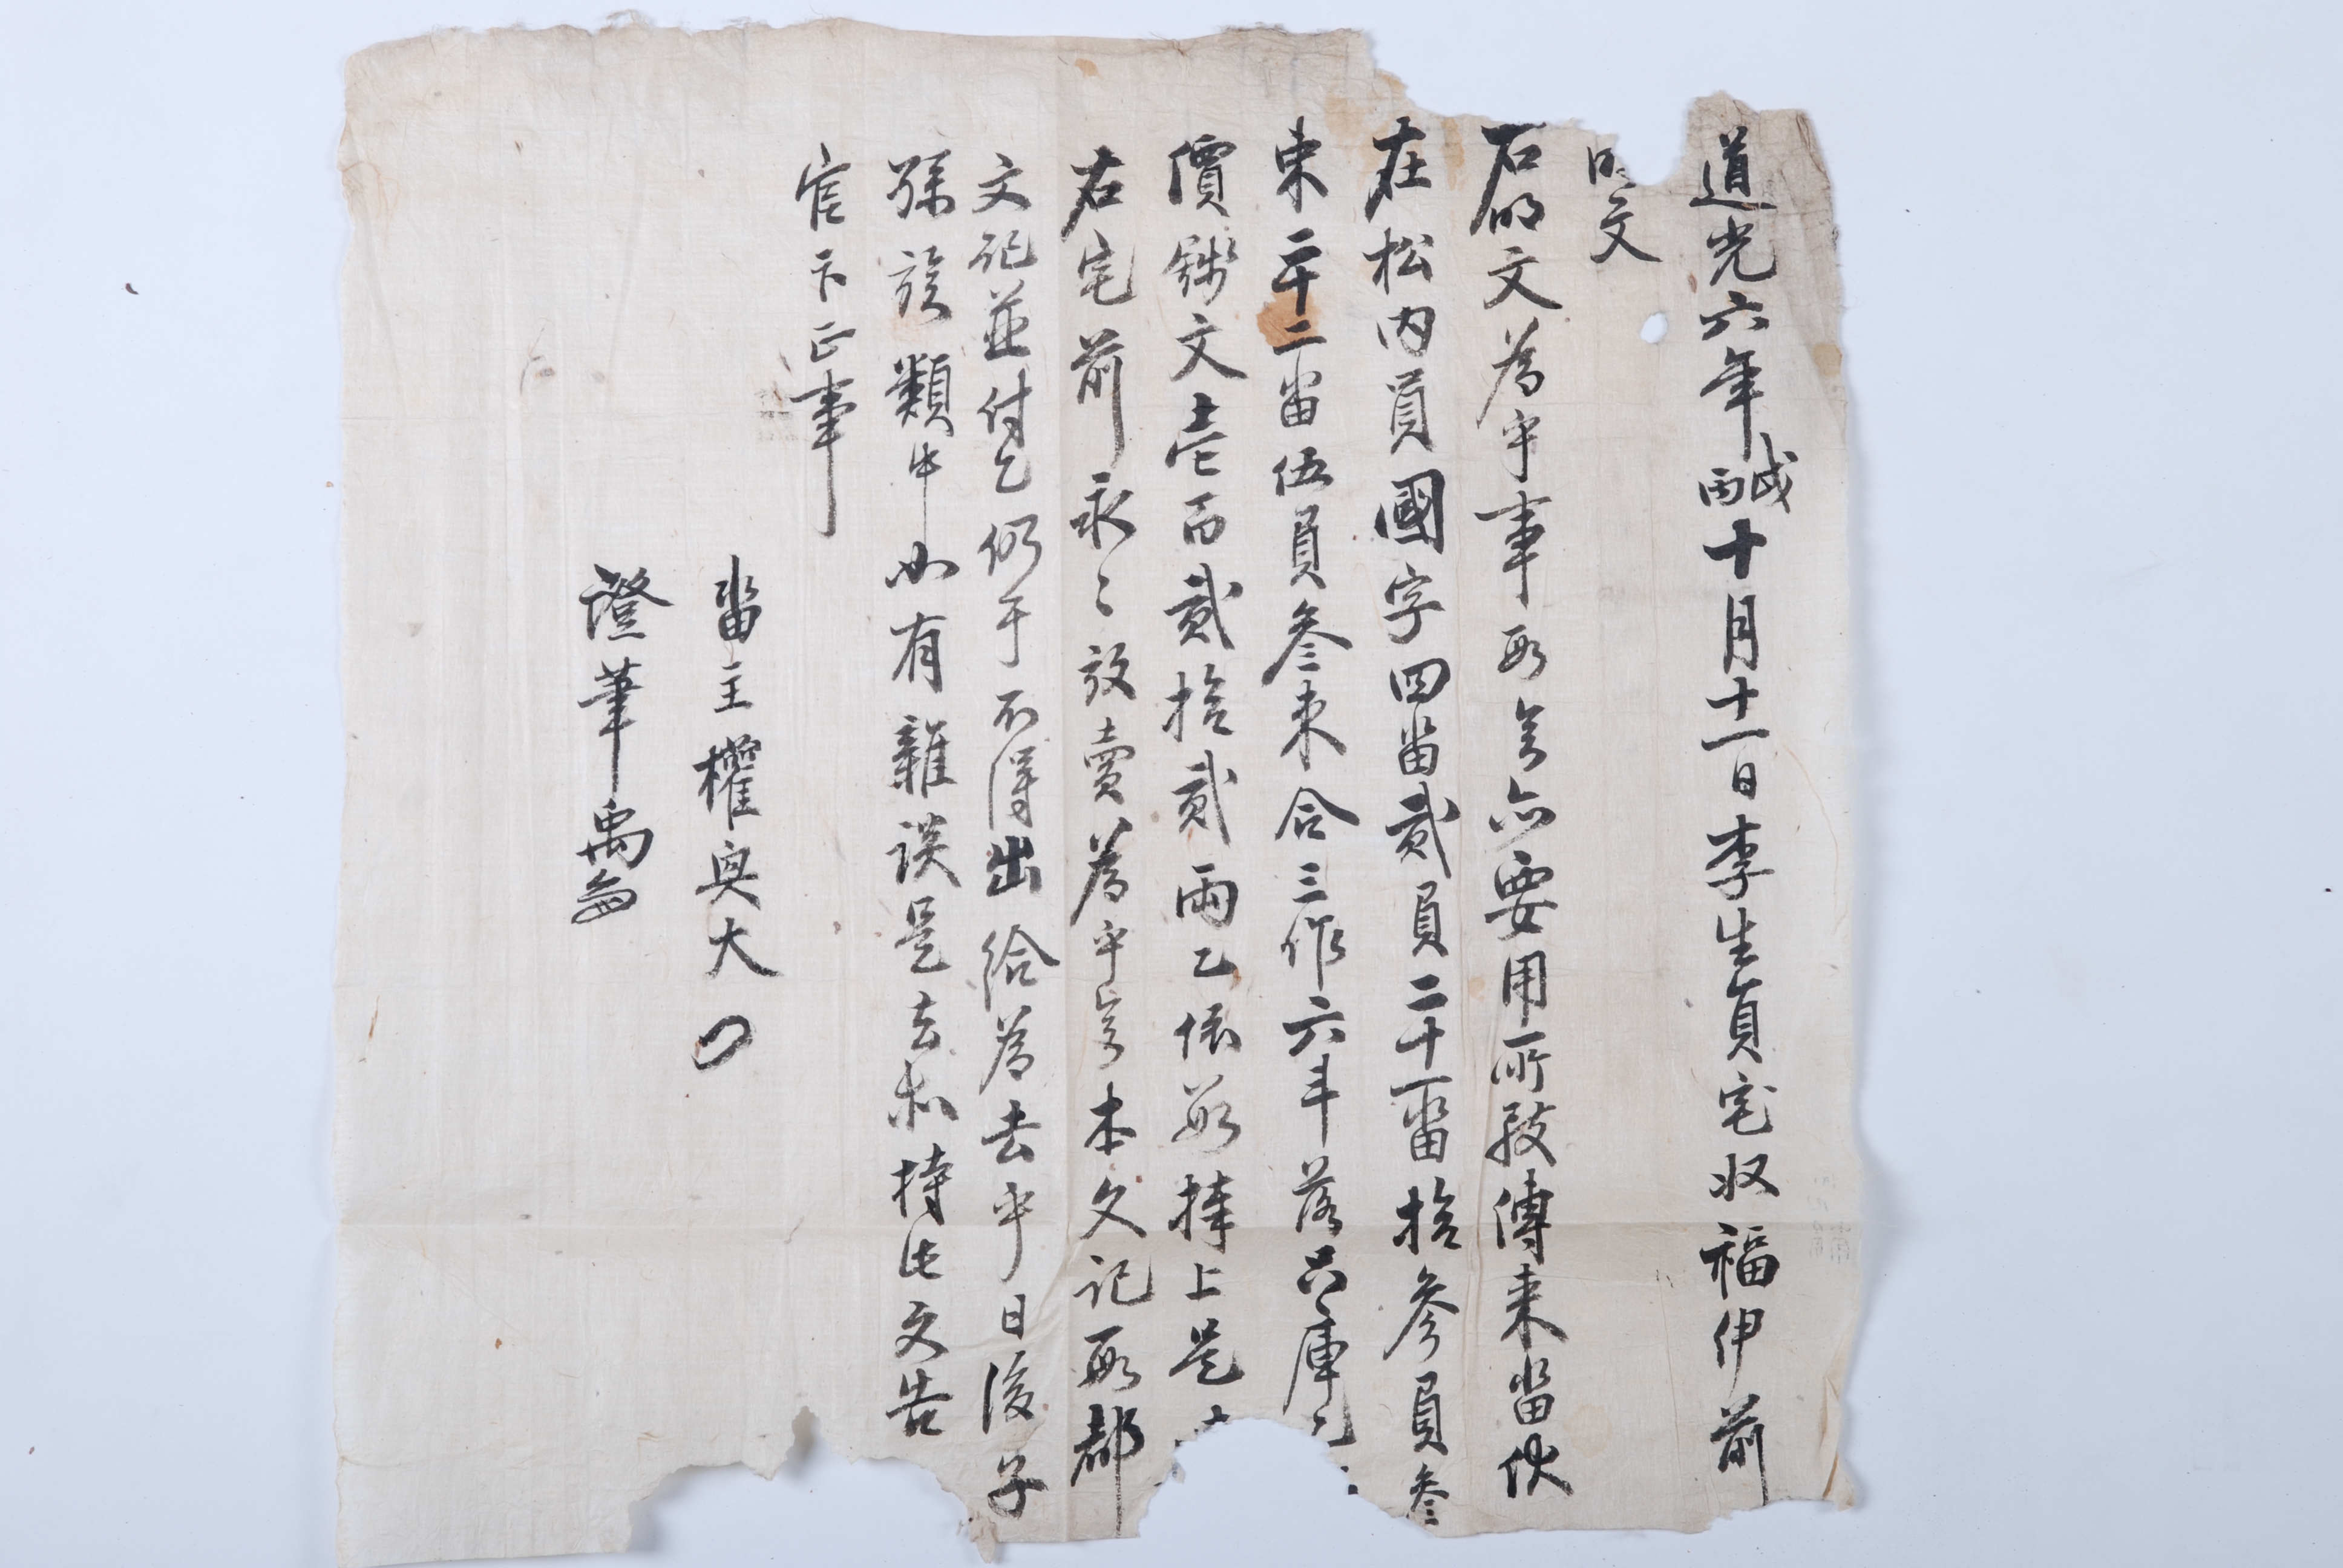 道光六年丙戌十月十一日李生員宅奴福伊前
明文
右明文爲乎事段矣亦要用所致傳来畓伏
在松内員國字四畓貳員二十一畓拾參員參
束二十二畓伍員參束合三作六斗落只庫
價錢文壹百貳拾貳兩乙依數捧上是
右宅前永〻放賣爲乎矣本文記段都
文記並付乙仍于不得出給爲去乎日後子
孫族類中如有雜談是去木持此文告
官卞正事
畓主權與大
證筆禹